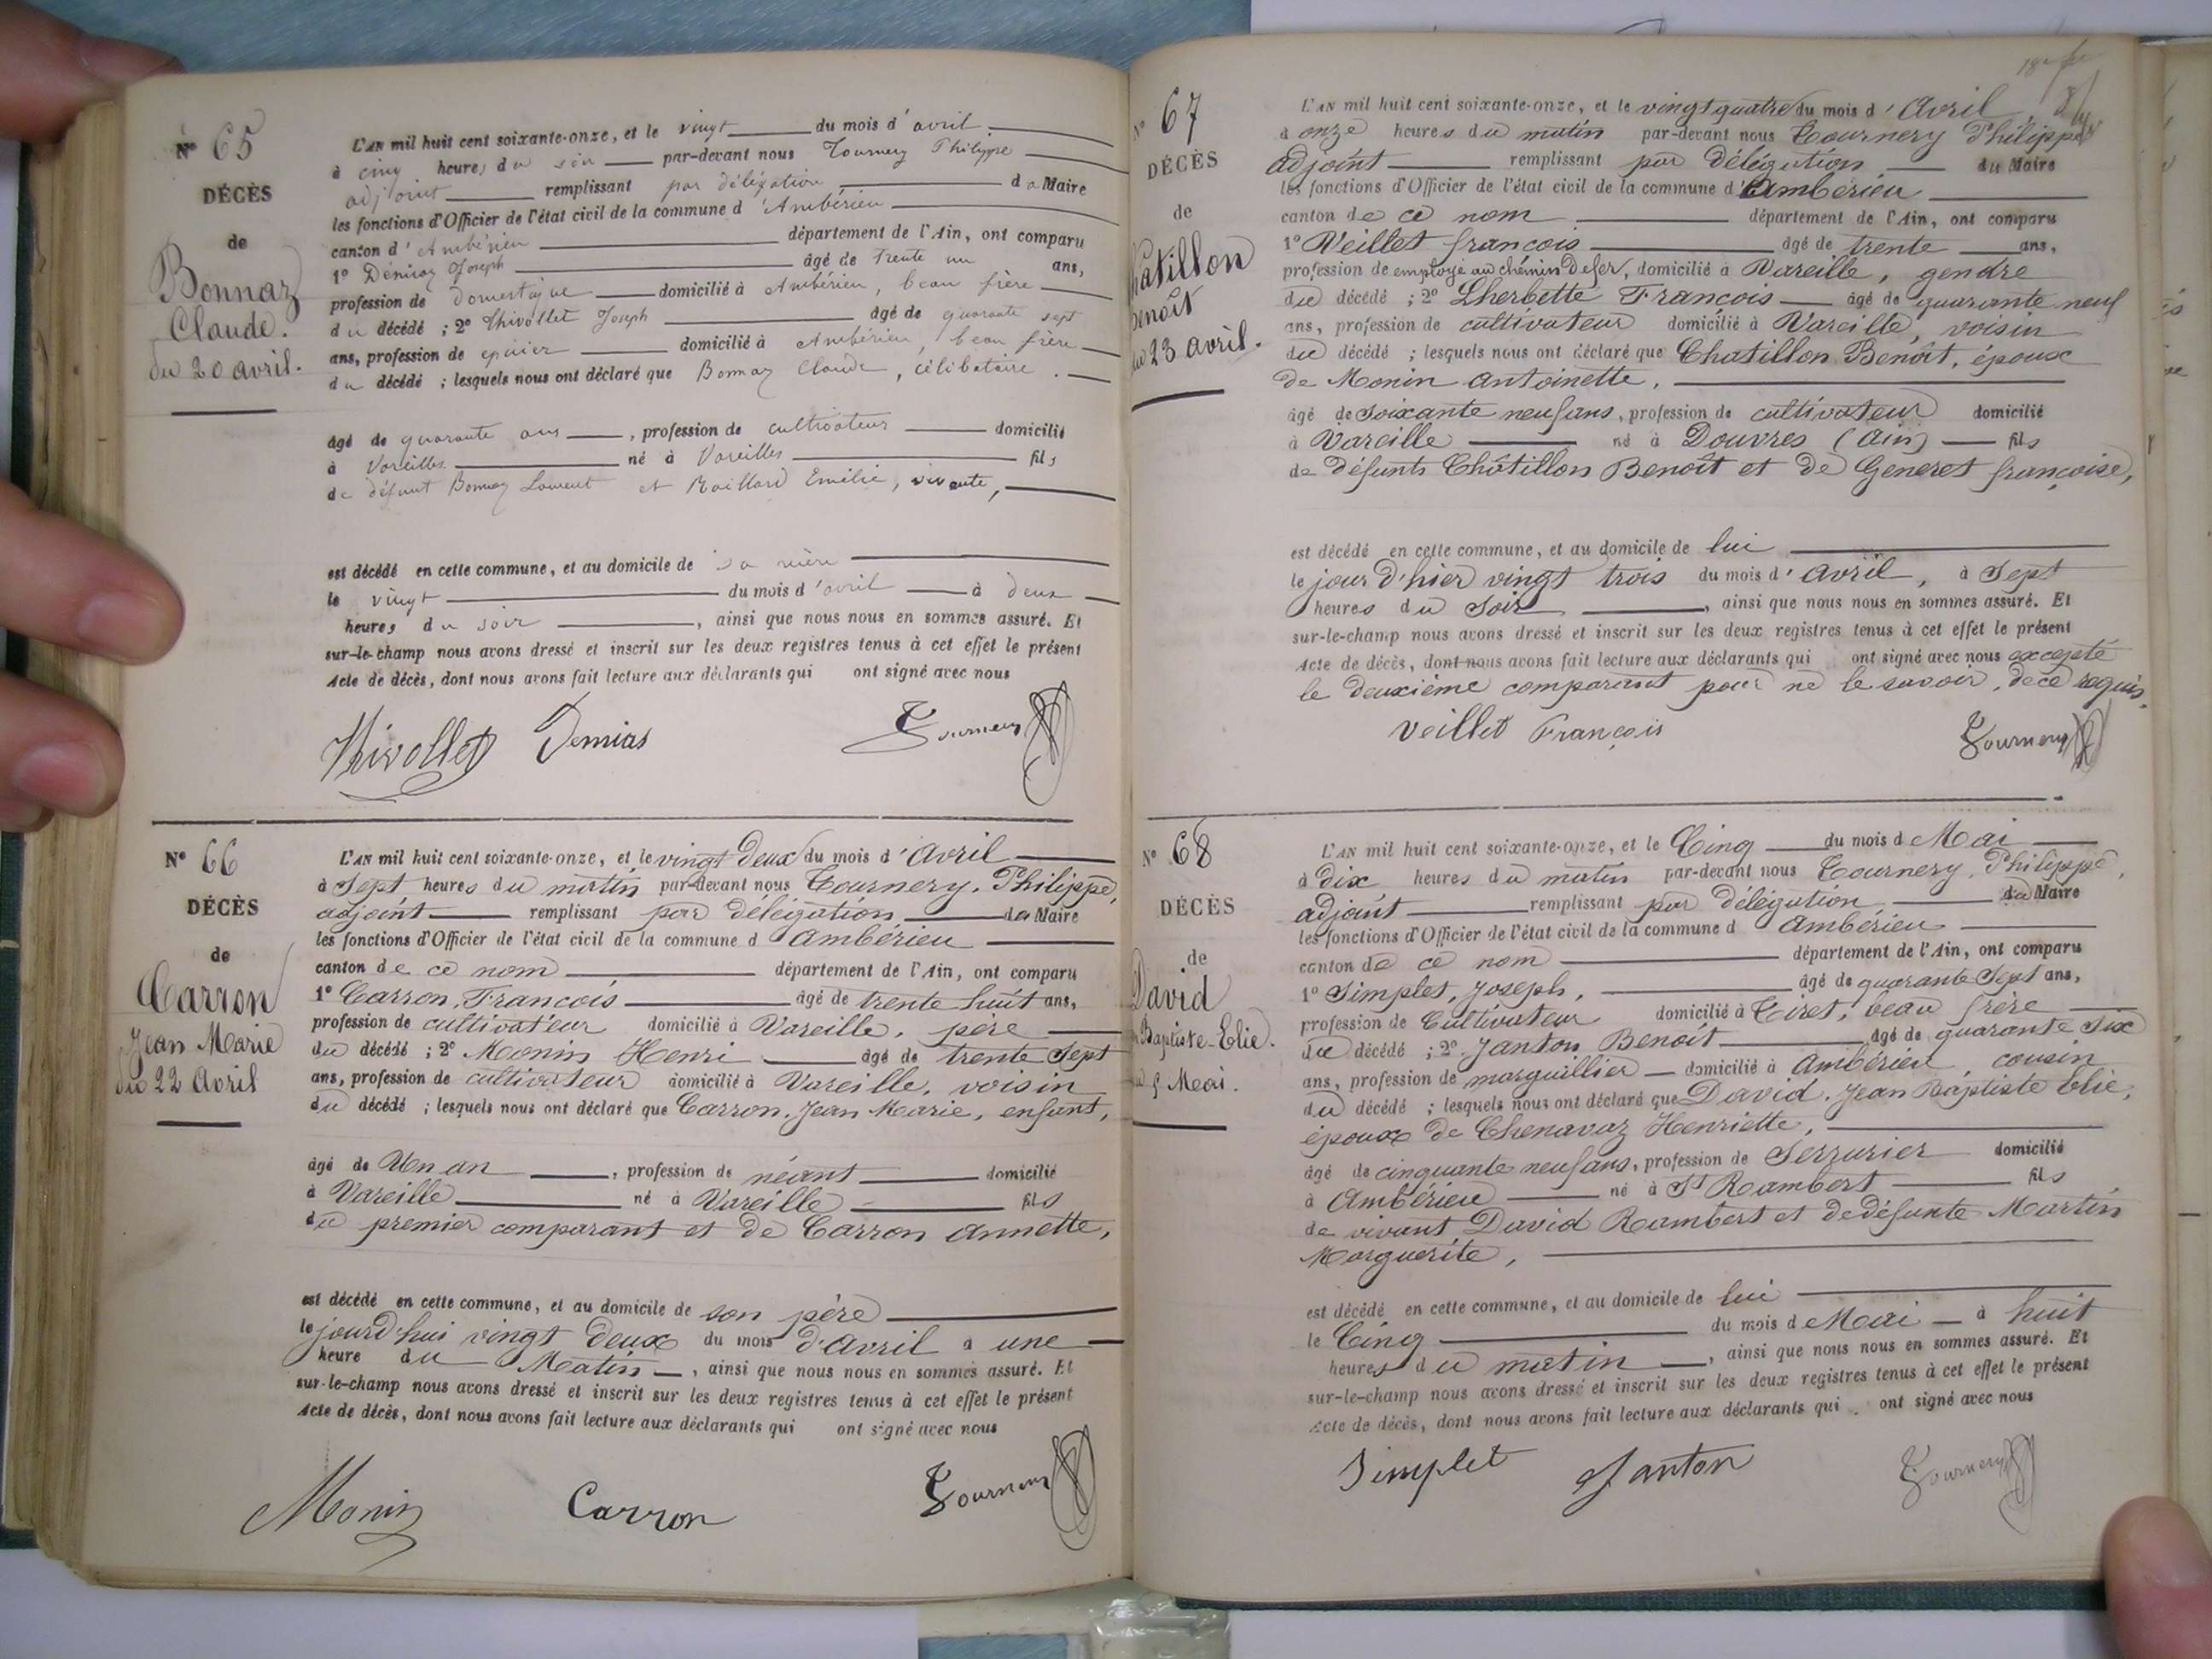 Nº 65
DÉCÈS
de
Bonnaz
Claude.
du 20 avril.
L'AN mil huit cent soixante-onze, et le vingt du mois d'avril
à cinq heures du soir par-devant nous Tournery Philippe
adjoint remplissant par délégation du Maire
les fonctions d'Officier de l'état civil de la commune d'Ambérieu
canton d'Ambérieu département de l'Ain, ont comparu
1º Démiaz Joseph âgé de trente un ans,
profession de domestique domicilié à Ambérieu, beau frère
du décédé ; 2º Thivollet Joseph âgé de quarante sept
ans, profession de épicier domicilié à Ambérieu, beau frère
du décédé ; lesquels nous ont déclaré que Bonnaz Claude, célibataire.
âgé de quarante ans, profession de cultivateur domicilié
à Vareilles né à Vareilles fils
de défunt Bonnaz Laurent et Emélie, vivante,
est décédé en cette commune, et au domicile de sa mère
le vingt du mois d'avril à deux
heures du soir, ainsi que nous nous en sommes assuré. Et
sur-le-champ nous avons dressé et inscrit sur les deux registres tenus à cet effet le présent
Acte de décès, dont nous avons fait lecture aux déclarants qui ont signé avec nous
Thivollet Demias Tournery
Nº 66
DÉCÈS
de
Carron
Jean Marie
du 22 Avril
L'AN mil huit cent soixante-onze, et le vingt deux du mois d'Avril
à Sept heures du matin par-devant nous Tournery, Philippe,
adjoint remplissant par délégation du Maire
les fonctions d'Officier de l'état civil de la commune d Ambérieu
canton de ce nom département de l'Ain, ont comparu
1º Carron, François âgé de trente huit ans,
profession de cultivateur domicilié à Vareille, père
du décédé ; 2º Monin Henri âgé de trente Sept
ans, profession de cultivateur domicilié à Vareille, voisin
du décédé ; lesquels nous ont déclaré que Carron, Jean Marie, enfant,
âgé de Un an, profession de néant domicilié
à Vareille né à Vareille fils
du premier comparant et de Carron Annette,
est décédé en cette commune, et au domicile de son père
le jourd'hui vingt deux du mois d'Avril à une
heure du Matin, ainsi que nous nous en sommes assuré. Et
sur-le-champ nous avons dressé et inscrit sur les deux registres tenus à cet effet le présent
Acte de décès, dont nous avons fait lecture aux déclarants qui ont signé avec nous
Monin Carron Tournery
Nº 67
DÉCÈS
de
hatillon
enoît
du 23 avril.
L'AN mil huit cent soixante-onze, et le vingt quatre du mois d'Avril
à onze heures du matin par-devant nous Tournery Philippe
adjoint remplissant par délégation du Maire
les fonctions d'Officier de l'état civil de la commune d'Ambérieu
canton de ce nom département de l'Ain, ont comparu
1º Veillet françois âgé de trente ans,
profession de employé au chémin de fer, domicilié à Vareille, gendre
du décédé ; 2º Lherbette François âgé de quarante neuf
ans, profession de cultivateur domicilié à Vareille, voisin
du décédé ; lesquels nous ont déclaré que Chatillon Benoît, époux
de Monin Antoinette,
âgé de soixante neuf ans, profession de cultivateur domicilié
à Vareille né à Douvres (Ain) fils
de défunts Châtillon Benoît et de Generet françoise,
est décédé en cette commune, et au domicile de lui
le jour d'hier vingt trois du mois d'Avril, à Sept
heures du Soir, ainsi que nous nous en sommes assuré. Et
sur-le-champ nous avons dressé et inscrit sur les deux registres tenus à cet effet le présent
Acte de décès, dont nous avons fait lecture aux déclarants qui ont signé avec nous excepté
le deuxième comparant pour ne le savoir, de ce requis.
Veillet François Tournery
Nº 68
DÉCÈS
de
David
Baptiste-Elie.
5 Mai.
L'AN mil huit cent soixante-onze, et le Cinq du mois d Mai
à dix heures du matin par-devant nous Tournery, Philippe,
adjoint remplissant par délégation du Maire
les fonctions d'Officier de l'état civil de la commune d Ambérieu
canton de ce nom département de l'Ain, ont comparu
1º Simplet, Joseph, âgé de quarante Sept ans,
profession de Cultivateur domicilié à Tiret, beau frère
du décédé ; 2º Janton Benoît âgé de quarante Six
ans, profession de marguillier domicilié à Ambérieu, cousin
du décédé ; lesquels nous ont déclaré que David, Jean Baptiste Elie,
époux de Chenavaz Henriette,
âgé de cinquante neuf ans, profession de Serrurier domicilié
à Ambérieu né à St Rambert fils
de vivant David Rambert et de défunte Martin
Marguerite,
est décédé en cette commune, et au domicile de lui
le Cinq du mois d Mai à huit
heures du matin, ainsi que nous nous en sommes assuré. Et
sur-le-champ nous avons dressé et inscrit sur les deux registres tenus à cet effet le présent
Acte de décès, dont nous avons fait lecture aux déclarants qui ont signé avec nous
Simplet Janton Tournery